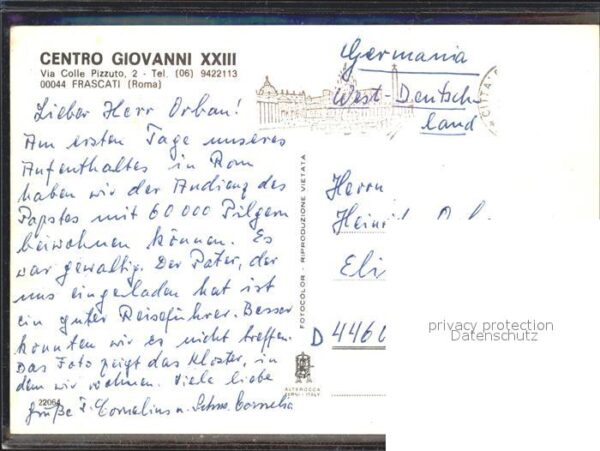 CENTRO GIOVANNI XXIII
Via Colle Pizzuto, 2 - Tel. (06) 9422113
00044 FRASCATI (Roma)
Lieber Herr Orban!
Am ersten Tage unseres
Aufenthaltes in Rom
haben wir der Audienz des
Papstes mit 60 000 Pilgern
beiwohnen können. Es
war gewaltig. Der Pater, der
uns eingeladen hat ist
ein guter Reiseführer. Besser
konnten wir es nicht treffen.
Das Foto zeigt das Kloster, in
dem wir wohnen. Viele liebe
Grüße F. Cornelius u. Schw. Cornelia
22064
FOTOCOLOR - RIPRODUZIONE VIETATA
ALTEROCCA
TERNI - ITALY
Germania
West-Deutsch-
land
Herrn
D 4460
privacy protection
Datenschutz